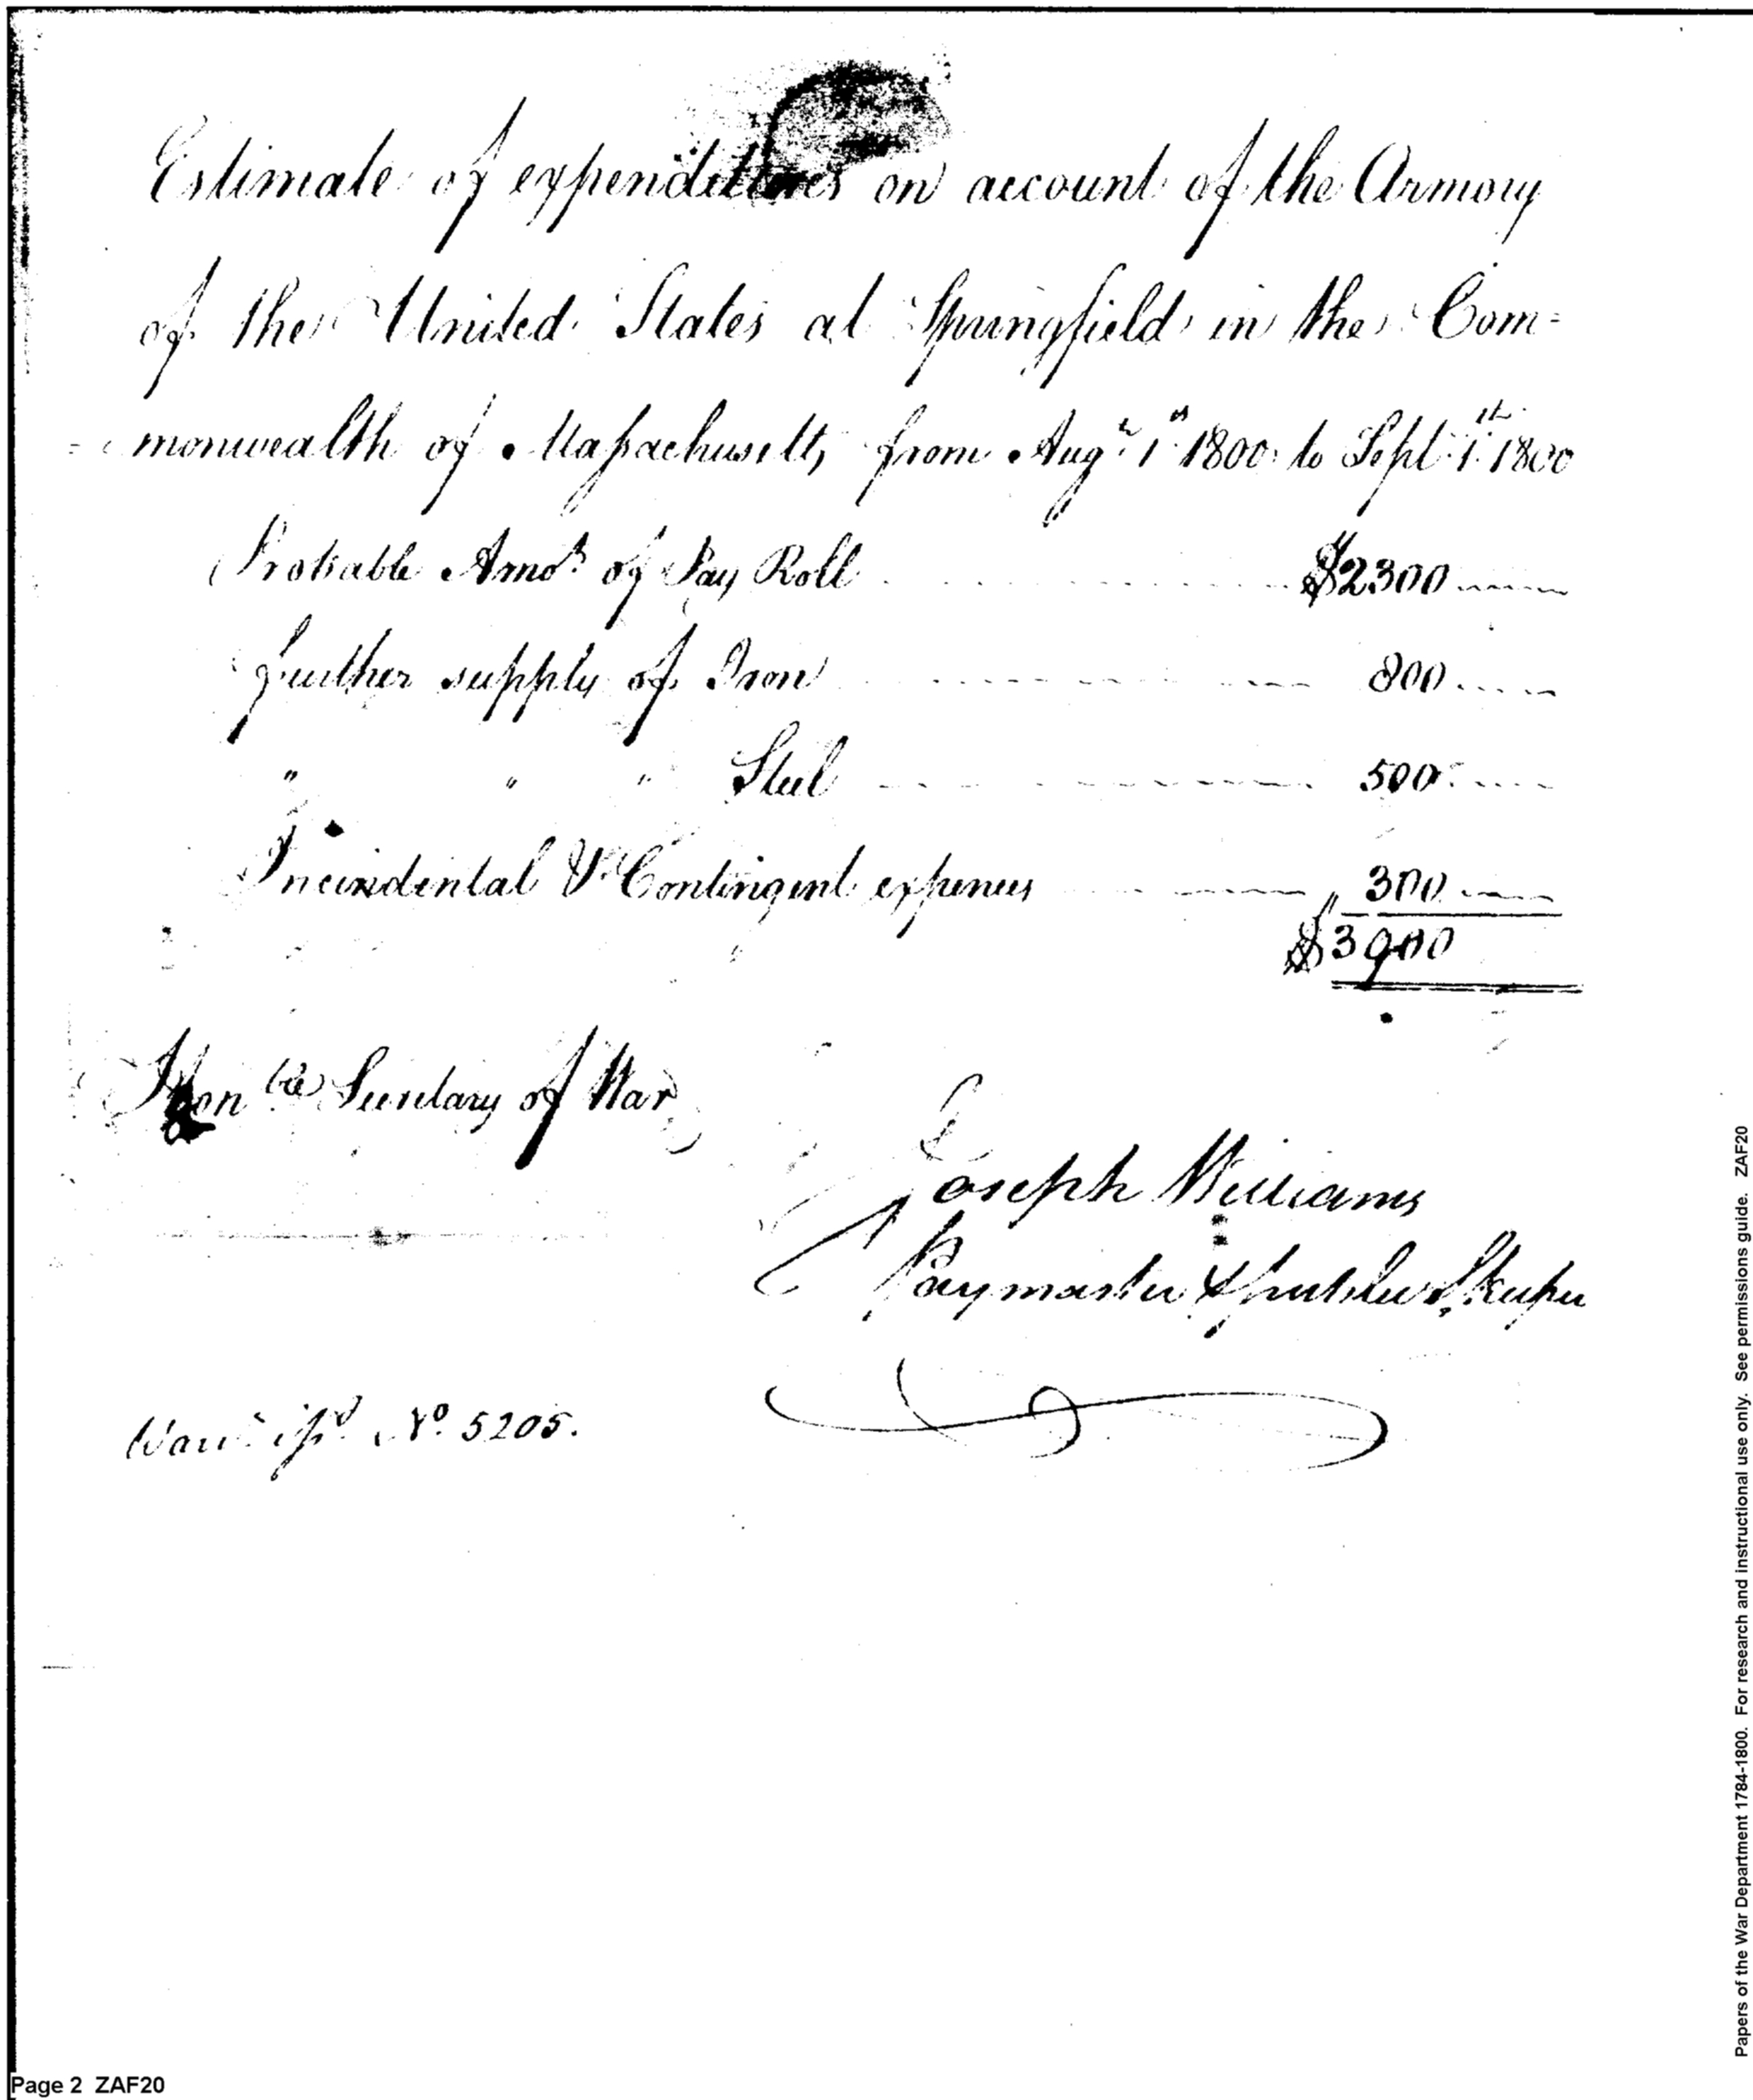 Estimate of expenditures on account of the Armory
of the United States at Springfield in the Com=
=monwealth of Massachusetts, from Augt 1st 1800 to Sept 1st 1800
Probable Amot of Pay Roll $2300
further supply of Iron 800
" " " Steel 500
Incindental & Contingent expences 300
$3900
Honble Secretary of War
Joseph Williams
Paymaster & public S.keeper
Warrt issd No 5205.
Page 2 ZAF20
Papers of the War Department 1784-1800. For research and instructional use only. See permissions guide. ZAF20